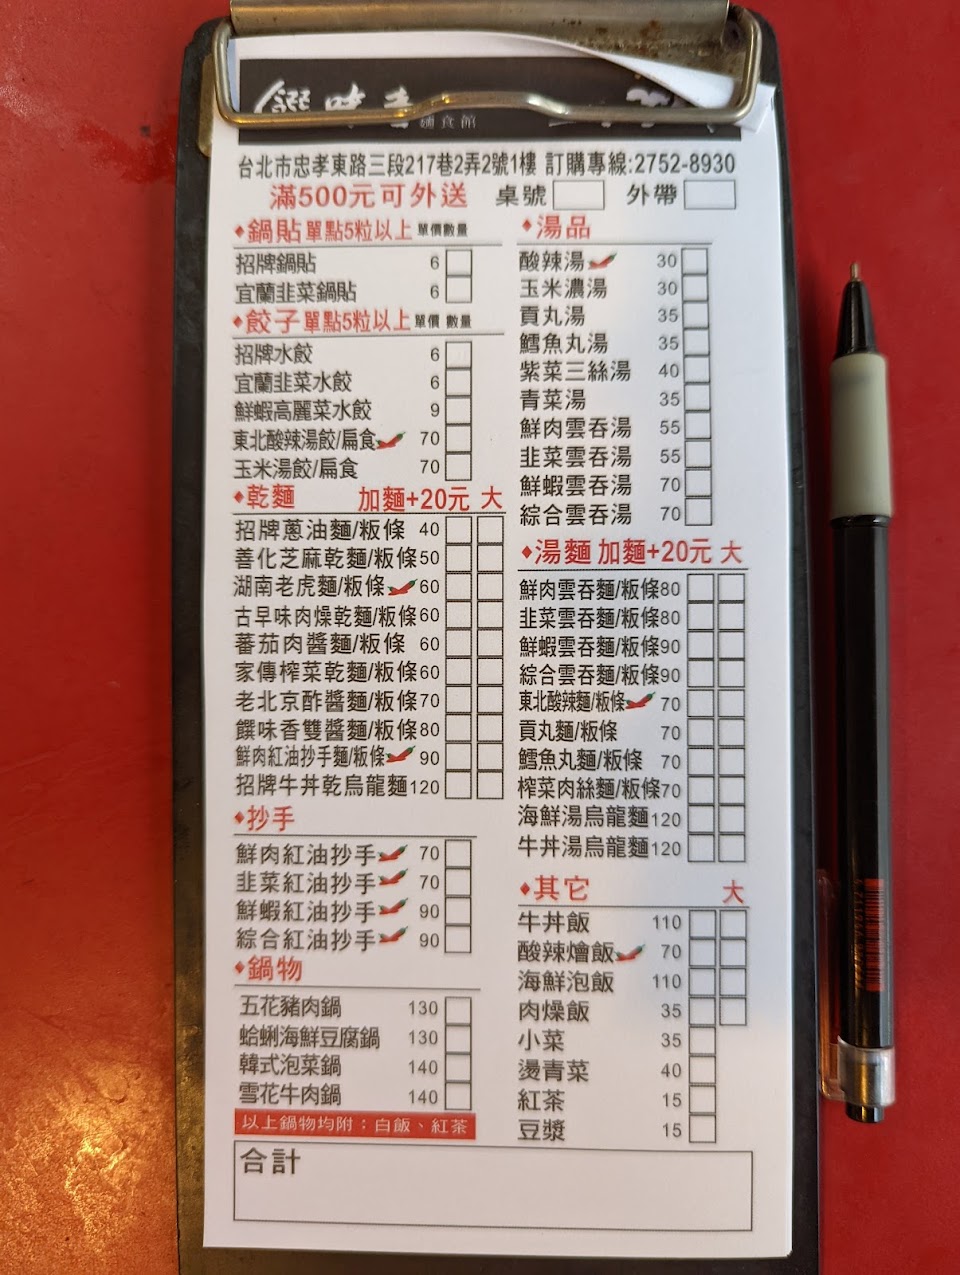 饌味香
麵食館
台北市忠孝東路三段217巷2弄2號1樓 訂購專線:2752-8930
滿500元可外送 桌號 外帶
♦鍋貼 單點5粒以上 單價 數量
招牌鍋貼 6
宜蘭韭菜鍋貼 6
♦餃子 單點5粒以上 單價 數量
招牌水餃 6
宜蘭韭菜水餃 6
鮮蝦高麗菜水餃 9
東北酸辣湯餃/扁食 70
玉米湯餃/扁食 70
♦乾麵 加麵+20元 大
招牌蔥油麵/粄條 40
善化芝麻乾麵/粄條 50
湖南老虎麵/粄條 60
古早味肉燥乾麵/粄條 60
蕃茄肉醬麵/粄條 60
家傳榨菜乾麵/粄條 60
老北京酢醬麵/粄條 70
饌味香雙醬麵/粄條 80
鮮肉紅油抄手麵/粄條 90
招牌牛丼乾烏龍麵 120
♦抄手
鮮肉紅油抄手 70
韭菜紅油抄手 70
鮮蝦紅油抄手 90
綜合紅油抄手 90
♦鍋物
五花豬肉鍋 130
蛤蜊海鮮豆腐鍋 130
韓式泡菜鍋 140
雪花牛肉鍋 140
以上鍋物均附：白飯、紅茶
♦湯品
酸辣湯 30
玉米濃湯 30
貢丸湯 35
鱈魚丸湯 35
紫菜三絲湯 40
青菜湯 35
鮮肉雲吞湯 55
韭菜雲吞湯 55
鮮蝦雲吞湯 70
綜合雲吞湯 70
♦湯麵 加麵+20元 大
鮮肉雲吞麵/粄條 80
韭菜雲吞麵/粄條 80
鮮蝦雲吞麵/粄條 90
綜合雲吞麵/粄條 90
東北酸辣麵/粄條 70
貢丸麵/粄條 70
鱈魚丸麵/粄條 70
榨菜肉絲麵/粄條 70
海鮮湯烏龍麵 120
牛丼湯烏龍麵 120
♦其它 大
牛丼飯 110
酸辣燴飯 70
海鮮泡飯 110
肉燥飯 35
小菜 35
燙青菜 40
紅茶 15
豆漿 15
合計